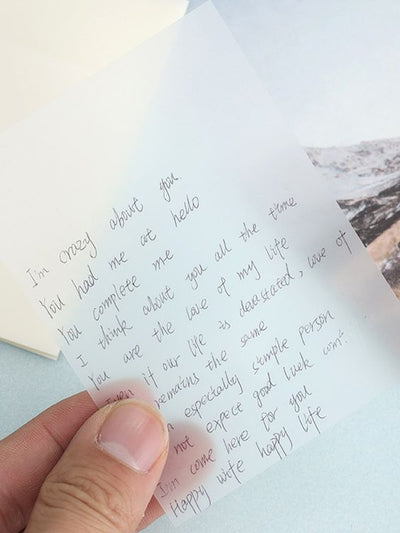 I'm crazy about you
You had me at hello
You complete me
I think about you all the time
You are the love of my life
Even if our life is devastated, love of
remains the same
a especially simple person
not expect good luck com.
I'm come here for you
Happy wife happy life